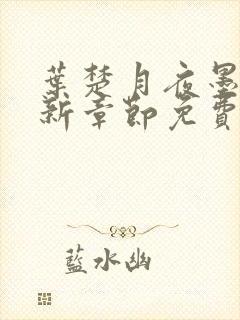 葉楚月夜墨
新章節免費
藍水幽